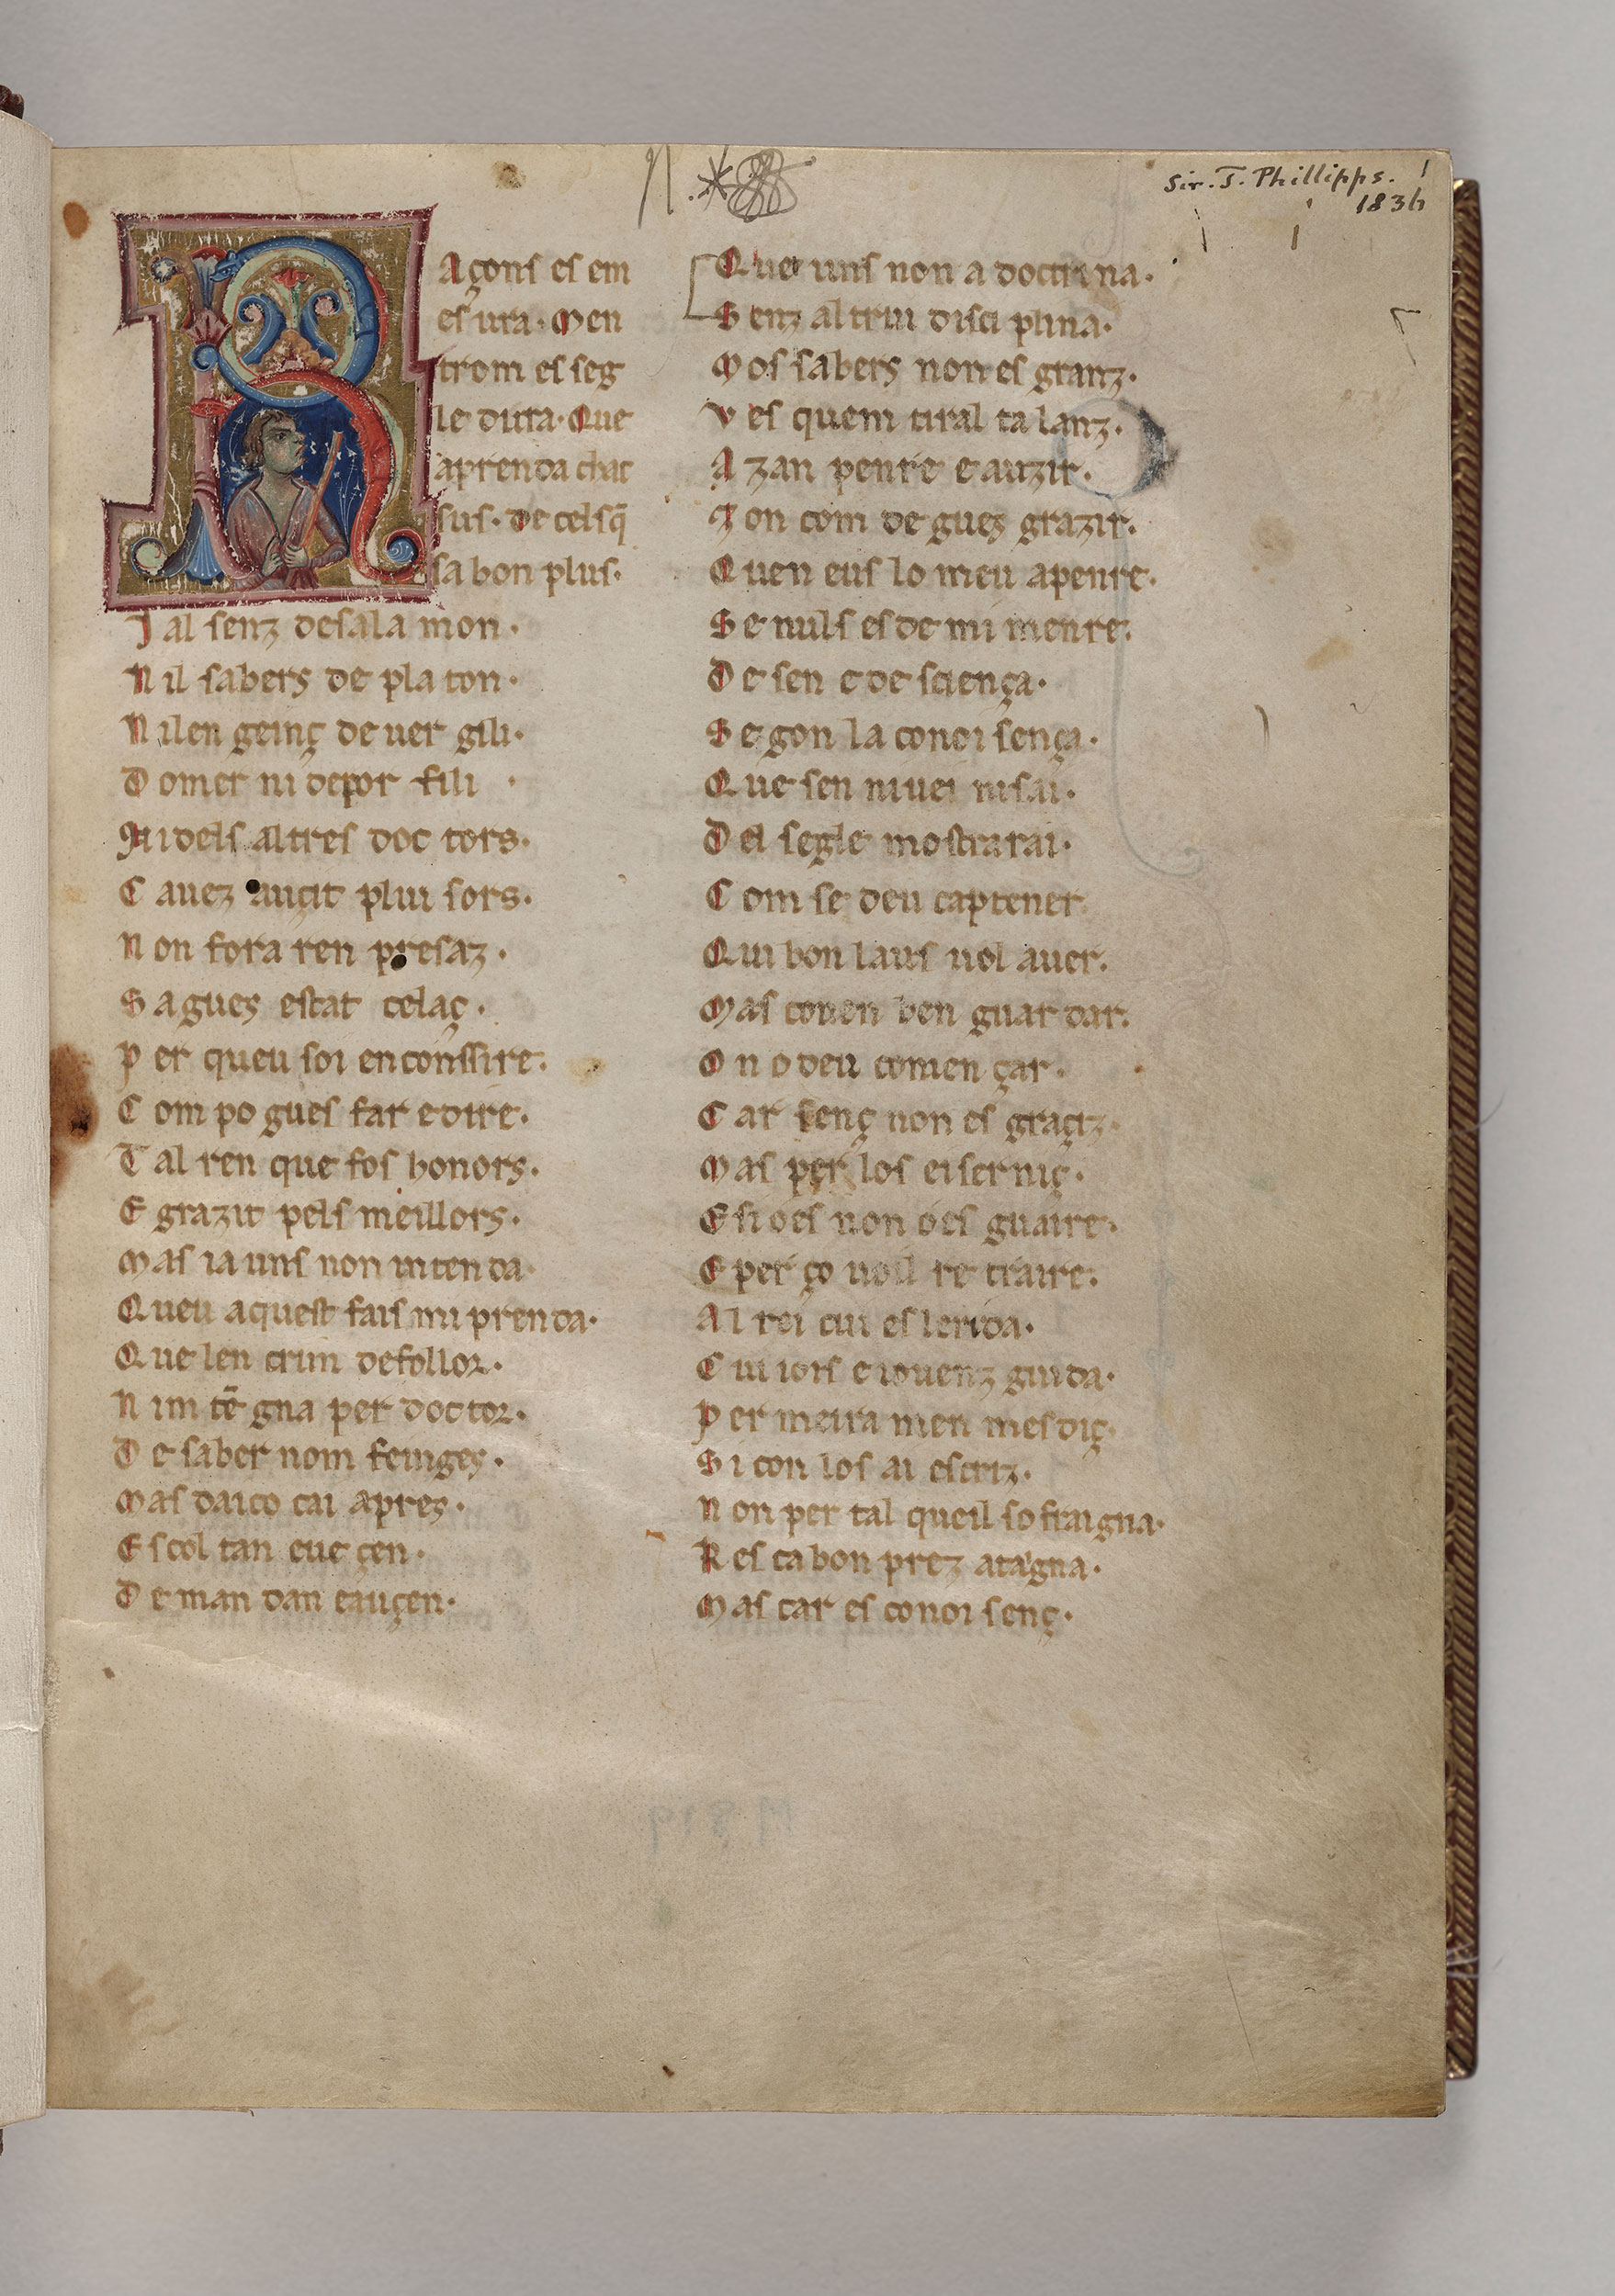 N.
Sir. T. Phillipps. 1
1836
Raçons es em
esura. Men
trom es seg
le dura. Que
aprenda chac
sus. de cels q̄
sa bon plus.
Ial senz de sala mon.
Nil sabers de pla ton.
Nil en geinç de uer gili.
Domer ni de por fili.
Ni dels altres doc tors.
Cauez auçit plui sors.
Non fora ren presaz.
Sagues estat celaç.
Per queu soi en conssire.
Com po gues far e dire.
Tal ren que fos honors.
E grazit pels meillors.
Mas ia uns non intenda.
Queu aquest fais mi prenda.
Que len crim de follor.
Nim tē gna per doctor.
De saber nom feinges.
Mas daico cai apres.
Escol tan e ue çen.
De man dan e auçen.
Que uns non a doctrina.
Senz altrui disci plina.
Mos sabers non es granz.
Ves quem tiral ta lanz.
A zan penre e auzir.
Non com de gues grazir.
Quen eus lo meu apenre.
Se nuls es de mi menre.
De sen e de sciença.
Segon la conoi sença.
Que sen ni uei ni sai.
Del segle mostrarai.
Com se deu captener
Qui bon laus uol auer.
Mas conen ben guar dar.
On o deu comen çar.
Car senç non es graçiz.
Mas per los eiserniç.
E si o es non o es guaire.
E per ço uoil re traire.
Al rei cui es lerida.
Cui iois e iouenz guida.
Per meira men mes diç.
Si con los ai escriz.
Non per tal queil sofraigna.
Res ca bon prez atagna.
Mas car es conoi senç.